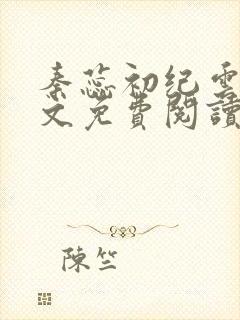 秦蕊初纪云
文免費閱讀
陳竺